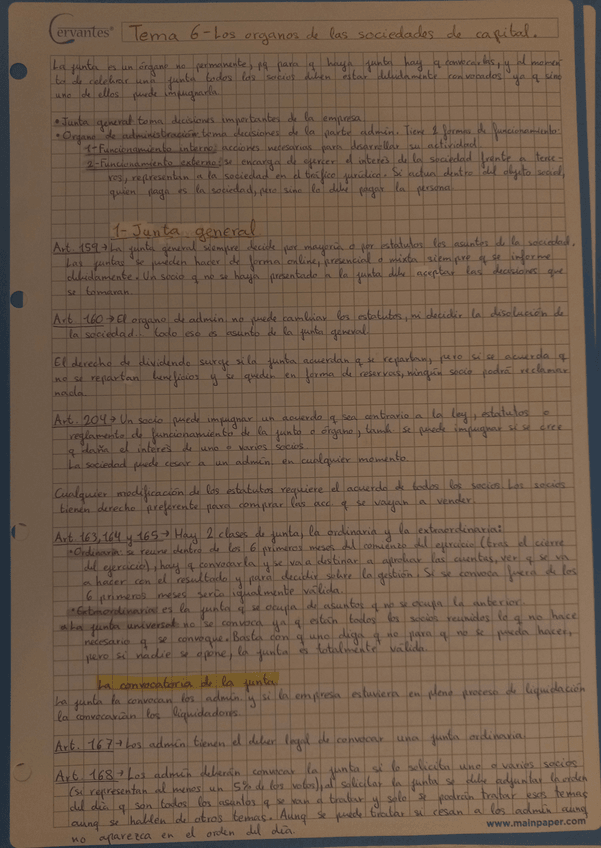 Cervantes
Tema 6-Los organos de las sociedades de capital.
La junta es un órgano no permanente, pq para q haya junta hay q convocarlas, y al momen-
to de celebrar una junta todos los socios deben estar debidamente convocados ya q sino
uno de ellos puede impugnarla
•Junta general: toma decisiones importantes de la empresa
•Organo de administración: toma decisiones de la parte admin. Tiene 2 formas de funcionamiento:
1-Funcionamiento interno: acciones necesarias para desarrollar su actividad
2-Funcionamiento externo: se encarga de ejercer el interés de la sociedad frente a terce-
ros, representan a la sociedad en el tráfico jurídico. Si actua dentro del objeto social,
quien paga es la sociedad, pero sino lo debe pagar la persona
1-Junta general
Art. 159→La junta general siempre decide por mayoría o por estatutos los asuntos de la sociedad.
Las juntas se pueden hacer de forma online, presencial o mixta siempre q se informe
debidamente. Un socio q no se haya presentado a la junta debe aceptar las decisiones que
se tomaran.
Art. 160→El organo de admin no puede cambiar los estatutos, ni decidir la disolución de
la sociedad. Todo eso es asunto de la junta general.
El derecho de dividendo surge si la junta acuerdan q se repartan, pero si se acuerda q
no se repartan beneficios y se queden en forma de reservas, ningún socio podrá reclamar
nada.
Art. 204→Un socio puede impugnar un acuerdo q sea contrario a la ley, estatutos o
reglamento de funcionamiento de la junta o órgano, tamb se puede impugnar si se cree
q daña el interés de uno o varios socios
La sociedad puede cesar a un admin en cualquier momento.
Cualquier modificación de los estatutos requiere el acuerdo de todos los socios. Los socios
tienen derecho preferente para comprar las acc q se vayan a vender
Art. 163, 164 y 165→Hay 2 clases de junta, la ordinaria y la extraordinaria:
•Ordinaria: se reune dentro de los 6 primeros meses del comienzo del ejercicio (tras el cierre
del ejercicio), hay q convocarla y se va a destinar a aprobar las cuentas, ver q se va
a hacer con el resultado y para decidir sobre la gestión. Si se convoca fuera de los
6 primeros meses sería igualmente válida.
•Extraordinaria: es la junta q se ocupa de asuntos q no se ocupa la anterior
•La junta universal: no se convoca ya q están todos los socios reunidos lo q no hace
necesario q se convoque. Basta con q uno diga q no para q no se pueda hacer,
pero si nadie se opone, la junta es totalmente válida.
La convocatoria de la junta
La junta la convocan los admin y si la empresa estuviera en pleno proceso de liquidación
la convocarían los liquidadores
Art. 167→Los admin tienen el deber legal de convocar una junta ordinaria
Art. 168→Los admin deberán convocar la junta si lo solicita uno o varios socios
(si representan al menos un 5% de los votos), al solicitar la junta se debe adjuntar la orden
del día q son todos los asuntos q se van a tratar y solo se podrán tratar esos temas
aunq se hablen de otros temas. Aunq se puede tratar si cesan a los admin aunq
no aparezca en el orden del día.
www.mainpaper.com